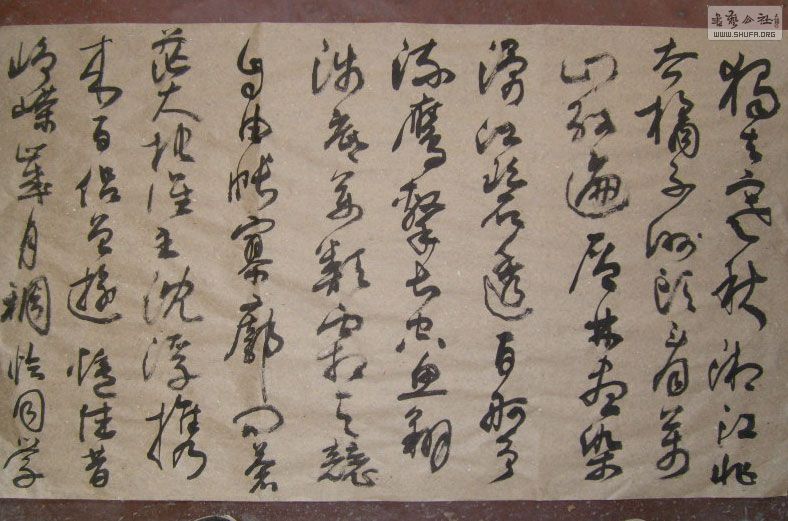 書藝公社
WWW.SHUFA.ORG
獨立寒秋湘江北
去橘子洲頭看萬
山紅遍層林盡染
漫江碧透百舸爭
流鷹擊長空魚翔
浅底萬類霜天競
自由悵寥廓问蒼
茫大地誰主沈浮攜
来百侶曾遊憶往昔
崢嶸歲月稠恰同学